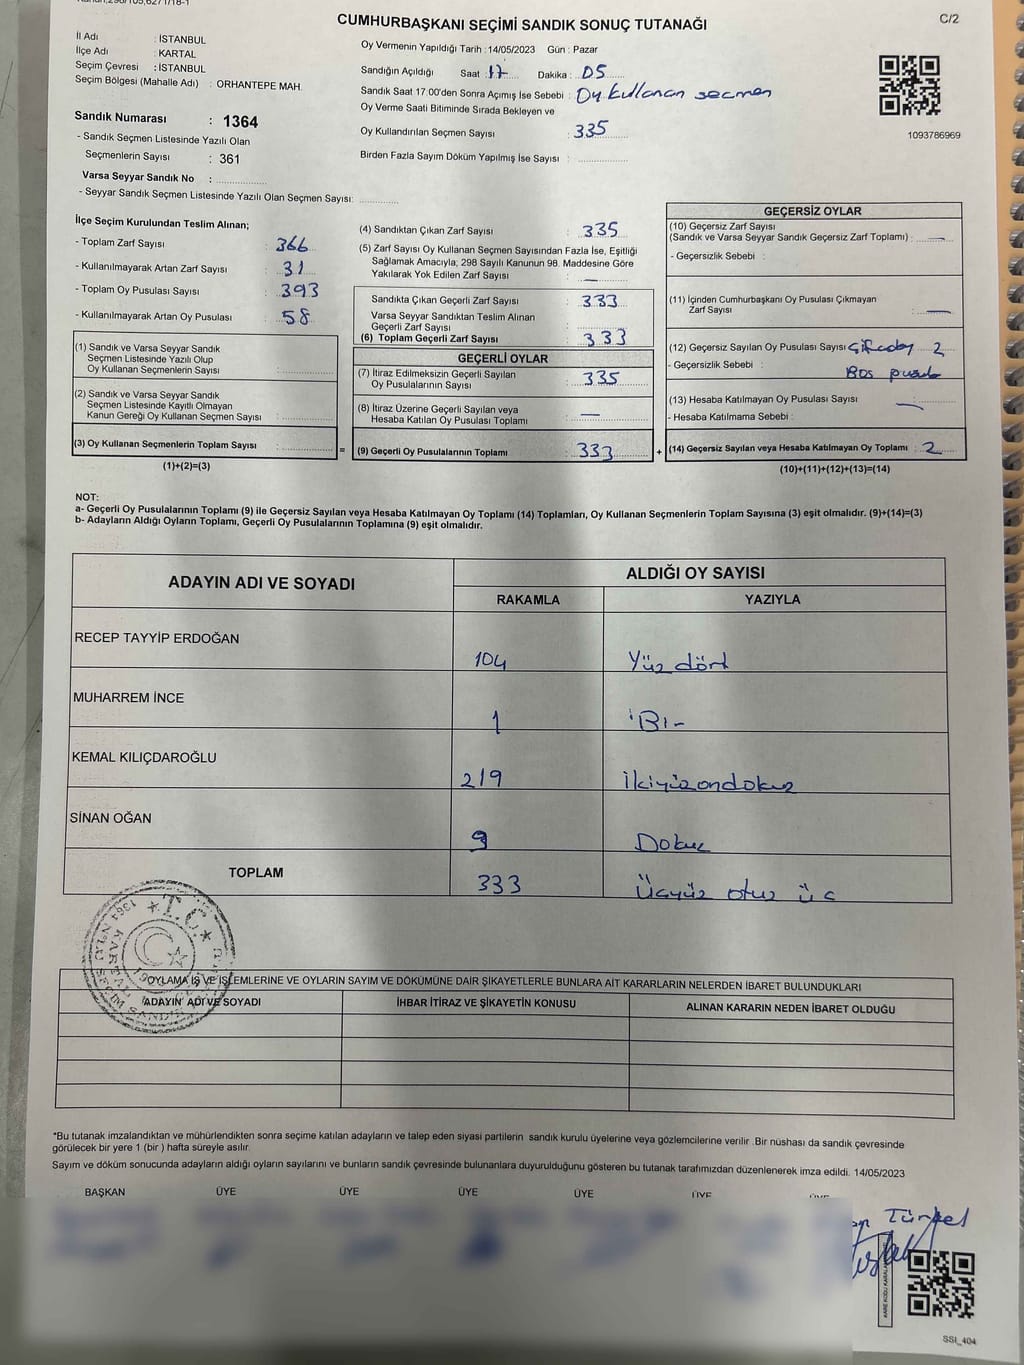 CUMHURBAŞKANI SEÇİMİ SANDIK SONUÇ TUTANAĞI
C/2
İl Adı : İSTANBUL
İlçe Adı : KARTAL
Seçim Çevresi : İSTANBUL
Seçim Bölgesi (Mahalle Adı) : ORHANTEPE MAH.
Sandık Numarası : 1364
- Sandık Seçmen Listesinde Yazılı Olan
Seçmenlerin Sayısı : 361
Varsa Seyyar Sandık No :
- Seyyar Sandık Seçmen Listesinde Yazılı Olan Seçmen Sayısı:
Oy Vermenin Yapıldığı Tarih : 14/05/2023 Gün : Pazar
Sandığın Açıldığı Saat : 17 Dakika : 05
Sandık Saat 17:00'den Sonra Açımış İse Sebebi : Oy kullanan seçmen
Oy Verme Saati Bitiminde Sırada Bekleyen ve
Oy Kullandırılan Seçmen Sayısı : 335
Birden Fazla Sayım Döküm Yapılmış İse Sayısı :
1093786969
İlçe Seçim Kurulundan Teslim Alınan;
- Toplam Zarf Sayısı : 366
- Kullanılmayarak Artan Zarf Sayısı : 31
- Toplam Oy Pusulası Sayısı : 393
- Kullanılmayarak Artan Oy Pusulası : 58
(1) Sandık ve Varsa Seyyar Sandık
Seçmen Listesinde Yazılı Olup
Oy Kullanan Seçmenlerin Sayısı :
(2) Sandık ve Varsa Seyyar Sandık
Seçmen Listesinde Kayıtlı Olmayan
Kanun Gereği Oy Kullanan Seçmen Sayısı :
(3) Oy Kullanan Seçmenlerin Toplam Sayısı :
(1)+(2)=(3)
=
(4) Sandıktan Çıkan Zarf Sayısı : 335
(5) Zarf Sayısı Oy Kullanan Seçmen Sayısından Fazla İse, Eşitliği
Sağlamak Amacıyla, 298 Sayılı Kanunun 98. Maddesine Göre
Yakılarak Yok Edilen Zarf Sayısı : —
Sandıkta Çıkan Geçerli Zarf Sayısı : 333
Varsa Seyyar Sandıktan Teslim Alınan
Geçerli Zarf Sayısı :
(6) Toplam Geçerli Zarf Sayısı : 333
GEÇERLİ OYLAR
(7) İtiraz Edilmeksizin Geçerli Sayılan
Oy Pusulalarının Sayısı : 335
(8) İtiraz Üzerine Geçerli Sayılan veya
Hesaba Katılan Oy Pusulaları Toplamı : —
(9) Geçerli Oy Pusulalarının Toplamı : 333
+
GEÇERSİZ OYLAR
(10) Geçersiz Zarf Sayısı
(Sandık ve Varsa Seyyar Sandık Geçersiz Zarf Toplamı) : —
- Geçersizlik Sebebi :
(11) İçinden Cumhurbaşkanı Oy Pusulası Çıkmayan
Zarf Sayısı : —
(12) Geçersiz Sayılan Oy Pusulası Sayısı : 2
- Geçersizlik Sebebi : Boş pusula
(13) Hesaba Katılmayan Oy Pusulası Sayısı : —
- Hesaba Katılmama Sebebi :
(14) Geçersiz Sayılan veya Hesaba Katılmayan Oy Toplamı : 2
(10)+(11)+(12)+(13)=(14)
NOT:
a- Geçerli Oy Pusulalarının Toplamı (9) ile Geçersiz Sayılan veya Hesaba Katılmayan Oy Toplamı (14) Toplamları, Oy Kullanan Seçmenlerin Toplam Sayısına (3) eşit olmalıdır. (9)+(14)=(3)
b- Adayların Aldığı Oyların Toplamı, Geçerli Oy Pusulalarının Toplamına (9) eşit olmalıdır.
ADAYIN ADI VE SOYADI
ALDIĞI OY SAYISI
RAKAMLA YAZIYLA
RECEP TAYYİP ERDOĞAN 104 Yüz dört
MUHARREM İNCE 1 Bir
KEMAL KILIÇDAROĞLU 219 ikiyüzondokuz
SİNAN OĞAN 9 Dokuz
TOPLAM 333 Üçyüz otuz üç
T.C.
OYLAMA İŞ VE İŞLEMLERİNE VE OYLARIN SAYIM VE DÖKÜMÜNE DAİR ŞİKAYETLERLE BUNLARA AİT KARARLARIN NELERDEN İBARET BULUNDUKLARI
ADAYIN ADI VE SOYADI İHBAR İTİRAZ VE ŞİKAYETİN KONUSU ALINAN KARARIN NEDEN İBARET OLDUĞU
*Bu tutanak imzalandıktan ve mühürlendikten sonra seçime katılan adayların ve talep eden siyasi partilerin sandık kurulu üyelerine veya gözlemcilerine verilir .Bir nüshası da sandık çevresinde
görülecek bir yere 1 (bir ) hafta süreyle asılır.
Sayım ve döküm sonucunda adayların aldığı oyların sayılarını ve bunların sandık çevresinde bulunanlara duyurulduğunu gösteren bu tutanak tarafımızdan düzenlenerek imza edildi. 14/05/2023
BAŞKAN ÜYE ÜYE ÜYE ÜYE ÜYE ÜYE
SSI_404